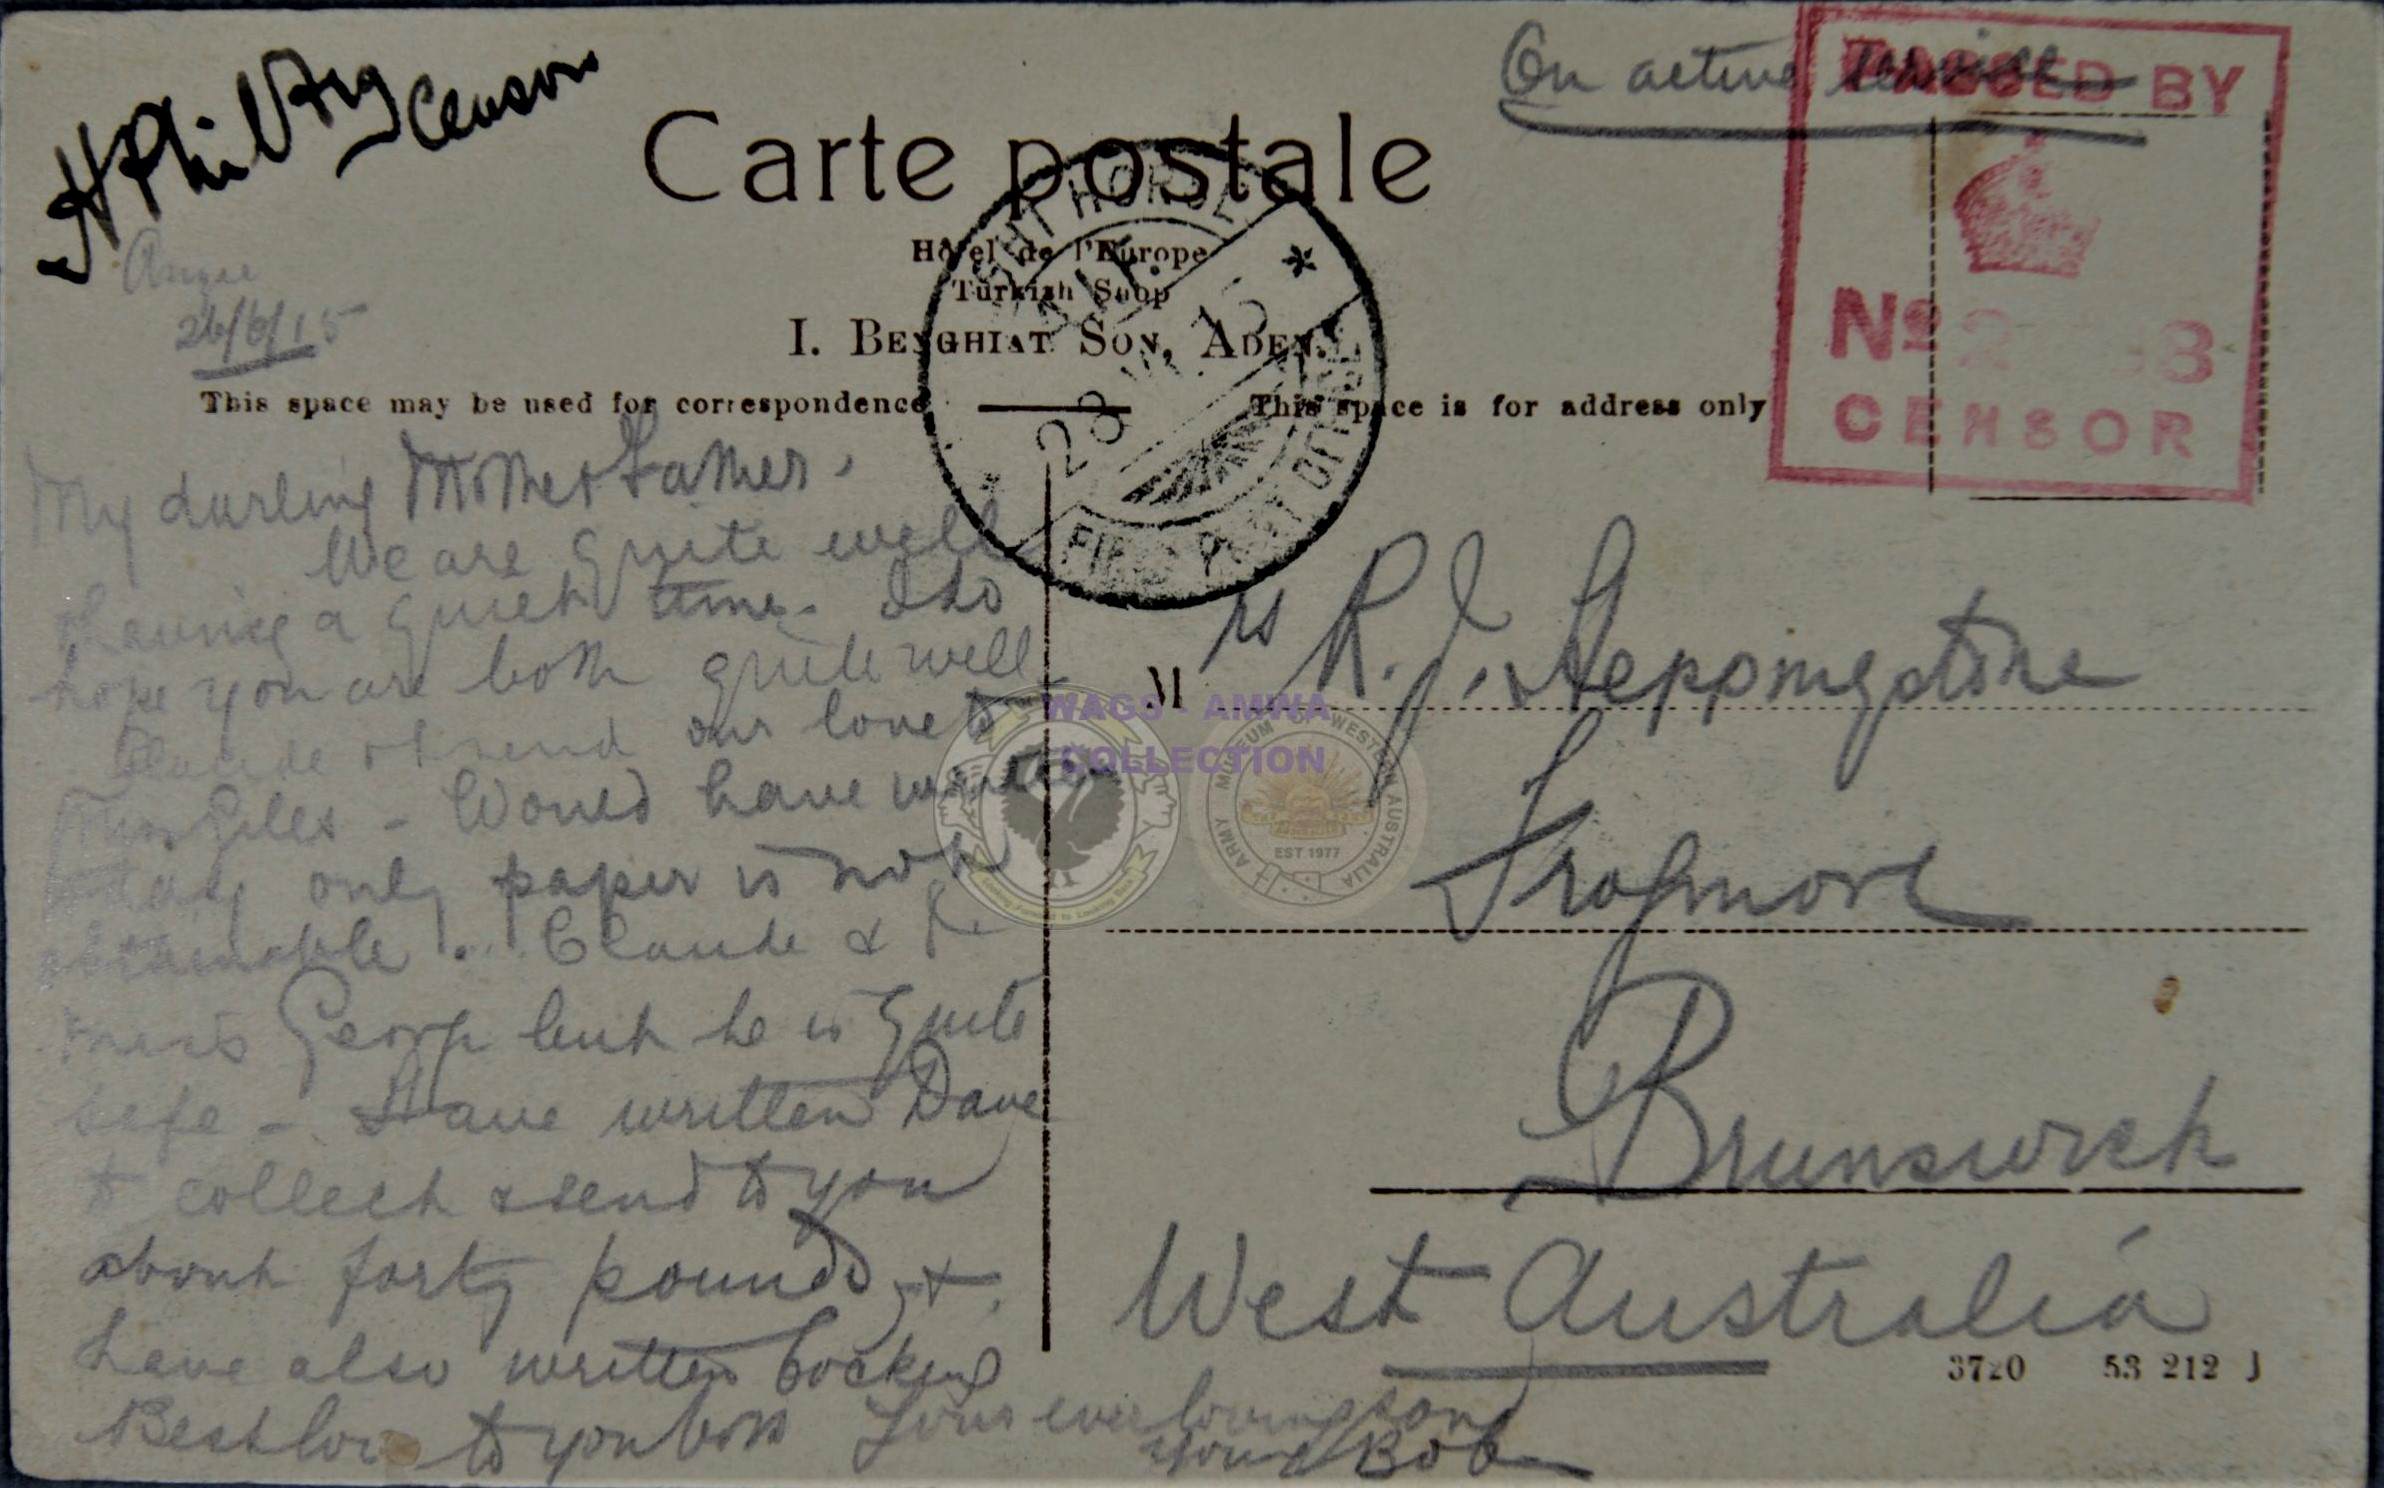 H Phil
Censor
On active service
PASSED BY
Nº 2 3
CENSOR
Carte postale
Hôtel de l'Europe
Turkish Shop
I. BENGHIAT SON, ADEN.
LIGHT HORSE
28
FIELD POST OFFICE
26/6/15
This space may be used for correspondence
This space is for address only
My darling Mother & Father,
We are quite well
having a quiet time. Do
hope you are both quite well
Claude & I send our love to
Miss Giles - Would have written
today only paper is not
obtainable. Claude & I
miss George but he is quite
safe - Have written Dave
to collect & send to you
about forty pounds, &
have also written
Best love to you both Your ever loving son
Bob
Mrs R. J. Heppingstone
Frogmore
Brunswick
West Australia
3720 53 212 J
WAGS - AMWA
COLLECTION
ARMY MUSEUM OF WESTERN AUSTRALIA
EST 1977